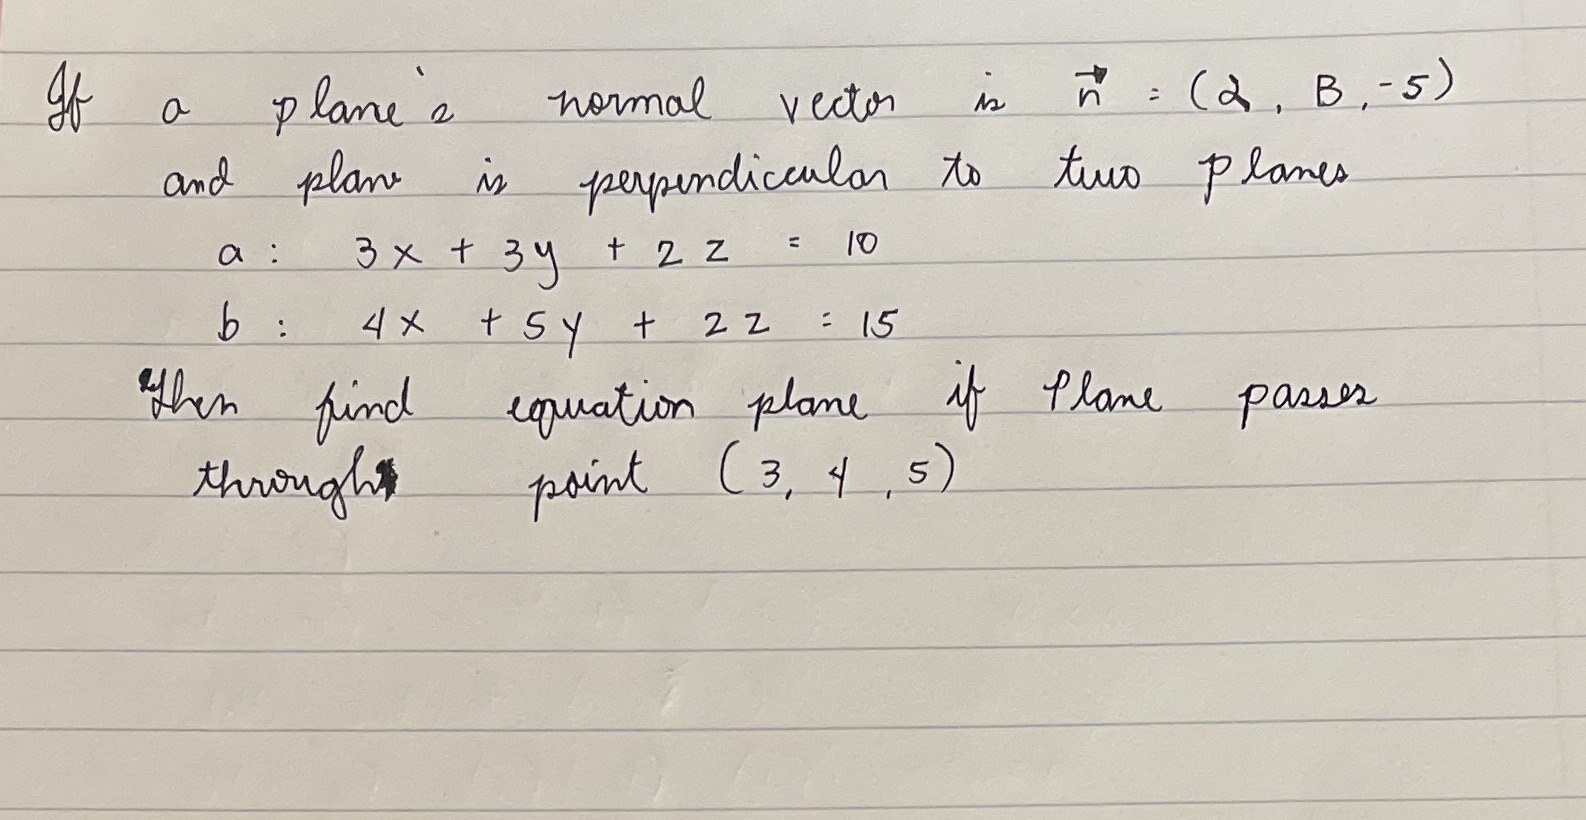 If a plane's normal vector is n⃗ = (2, B, -5)
and plane is perpendicular to two planes
a : 3x + 3y + 2z = 10
b : 4x + 5y + 2z = 15
Then find equation plane if Plane passes
through point (3, 4, 5)